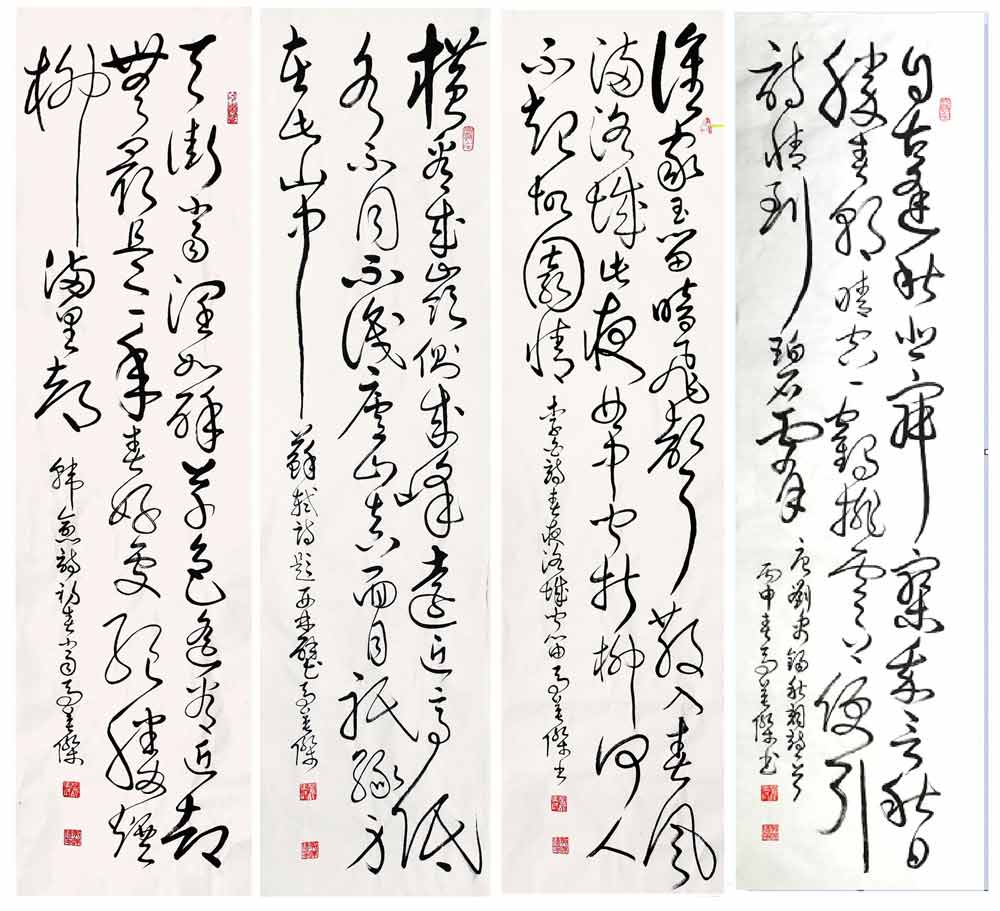 自古逢秋悲寂寥我言秋日
勝春朝晴空一鶴排雲上便引
詩情到碧霄
唐劉禹錫秋詞詩
丙申春高傑書
誰家玉笛暗飛聲散入春風
滿洛城此夜曲中聞折柳何人
不起故園情
李白詩春夜洛城聞笛高傑書
橫看成嶺側成峰遠近高低
各不同不識廬山真面目祇緣身
在此山中
蘇軾詩題西林壁高傑
天街小雨潤如酥草色遙看近却
無最是一年春好處絕勝煙
柳滿皇都
韓愈詩初春小雨高傑